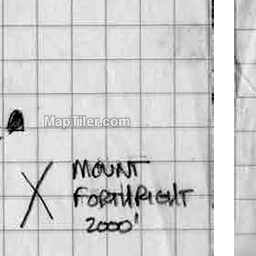 MapTiler.com
X MOUNT
FORTHRIGHT
2000'